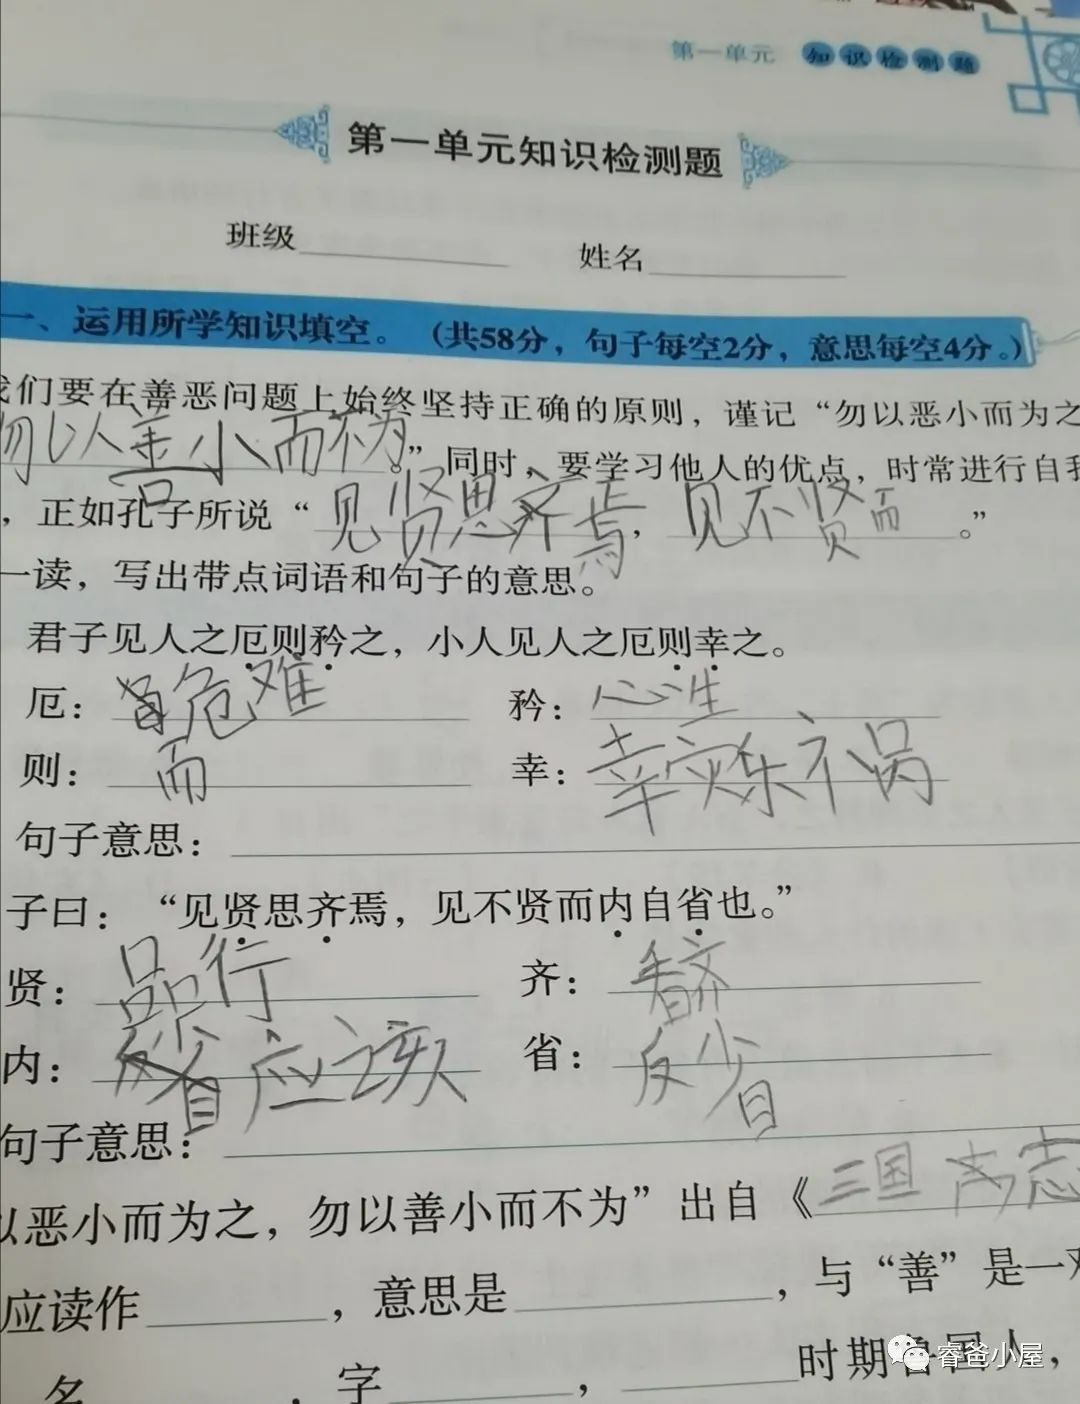 第一单元 知识检测题
第一单元知识检测题
班级 姓名
一、运用所学知识填空。(共58分，句子每空2分，意思每空4分。)
我们要在善恶问题上始终坚持正确的原则，谨记“勿以恶小而为之
勿以善小而不为。”同时，要学习他人的优点，时常进行自我
，正如孔子所说“见贤思齐焉，见不贤而。”
一读，写出带点词语和句子的意思。
君子见人之厄则矜之，小人见人之厄则幸之。
厄：危难 矜：心生
则：而 幸：幸灾乐祸
句子意思：
子曰：“见贤思齐焉，见不贤而内自省也。”
贤：品行 齐：看齐
内：应该 省：反省
句子意思：
以恶小而为之，勿以善小而不为”出自《三国志
应读作，意思是，与“善”是一对
名，字，时期鲁国人，
睿爸小屋